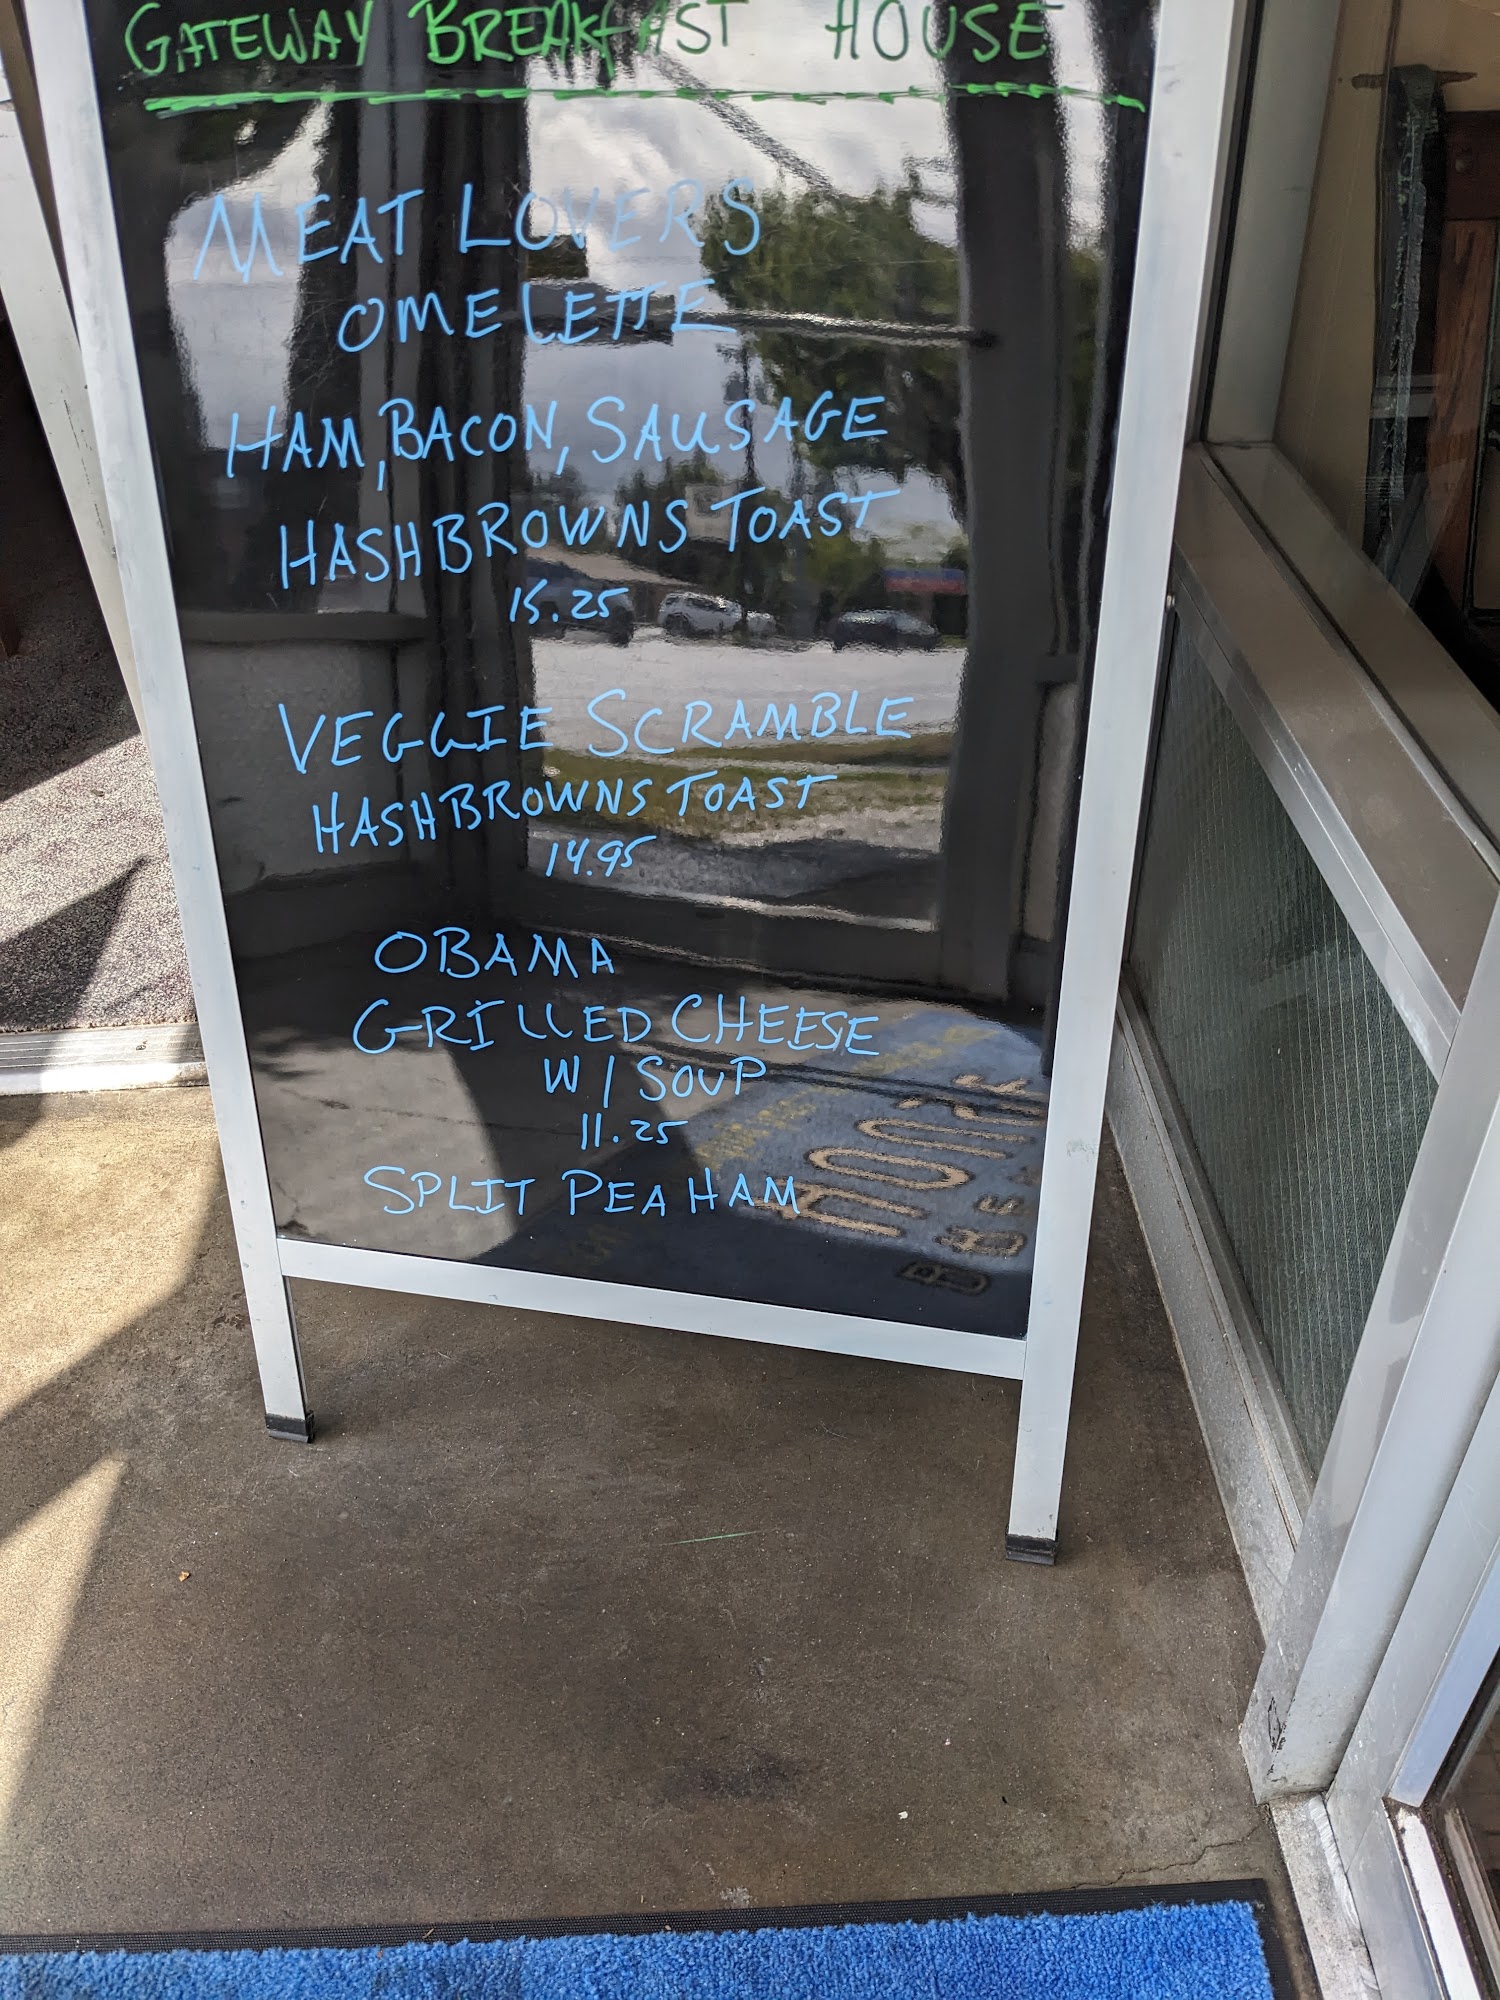 GATEWAY BREAKFAST HOUSE
MEAT LOVERS
OMELETTE
HAM, BACON, SAUSAGE
HASHBROWNS TOAST
15.25
VEGGIE SCRAMBLE
HASHBROWNS TOAST
14.95
OBAMA
GRILLED CHEESE
W/ SOUP
11.25
SPLIT PEA HAM